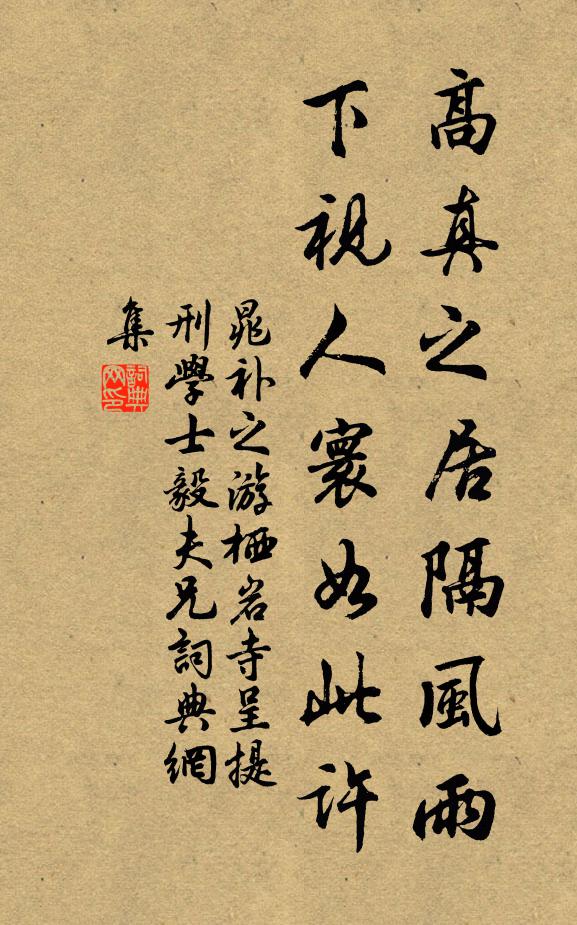 高真之居隔風雨
下視人寰如此許
晁補之游栖岩寺呈提
刑學士毅夫兄詞典網
集
詞典
网印